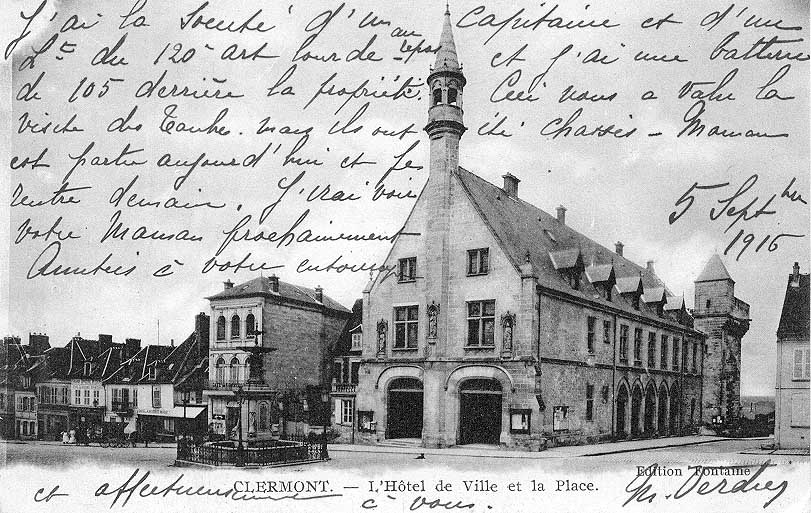 J'ai la Société d'un Capitaine et d'un
Lt du 120e art lourde et j'ai une batterie
de 105 derrière la propriété. Ceci nous a valu la
visite des Taubes. mais ils ont été chassés - Maman
est partie aujourd'hui et je
rentre demain. J'irai voir
votre Maman prochainement
5 Septbre
1915
Amitiés à votre entourage
Edition Fontaine
CLERMONT. — L'Hôtel de Ville et la Place.
et affectueusement à vous.